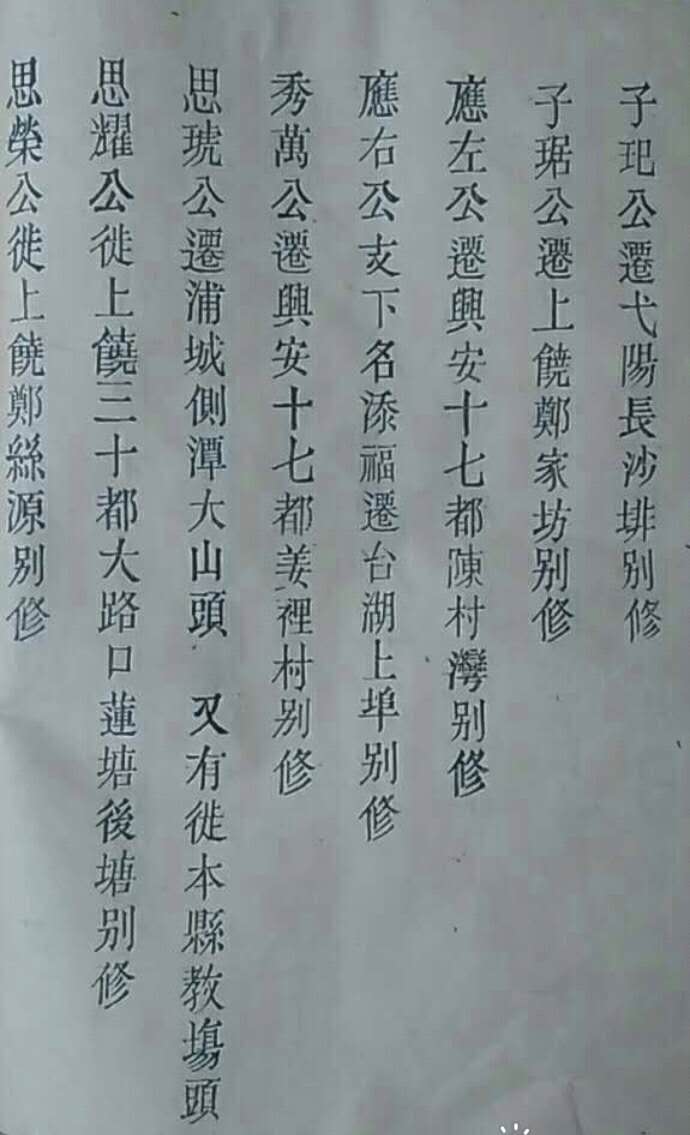 子玘公遷弋陽長沙排别修
子琚公遷上饒鄭家坊别修
應左公遷興安十七都陳村灣别修
應右公支下名添福遷台湖上埠别修
秀萬公遷興安十七都姜裡村别修
思琥公遷浦城側潭大山頭 又有徙本縣教塲頭
思耀公徙上饒三十都大路口蓮塘後塘别修
思榮公徙上饒鄭絲源别修